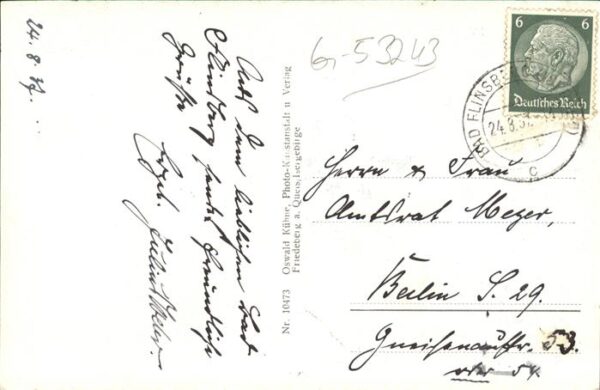 24. 8. 37.
Aus dem lieblichen Bad
Flinsberg sendet freundliche
Grüße
Ergeb.
G-53243
Nr. 10473 Oswald Kühne, Photo-Kunstanstalt u. Verlag
Friedeberg a. Queis, Isergebirge
6 6
Deutsches Reich
BAD FLINSBERG
24.8.37
c
Herrn u Frau
Amtsrat Meyer,
Berlin S. 29.
Gneisenaustr. 53.
oder 54